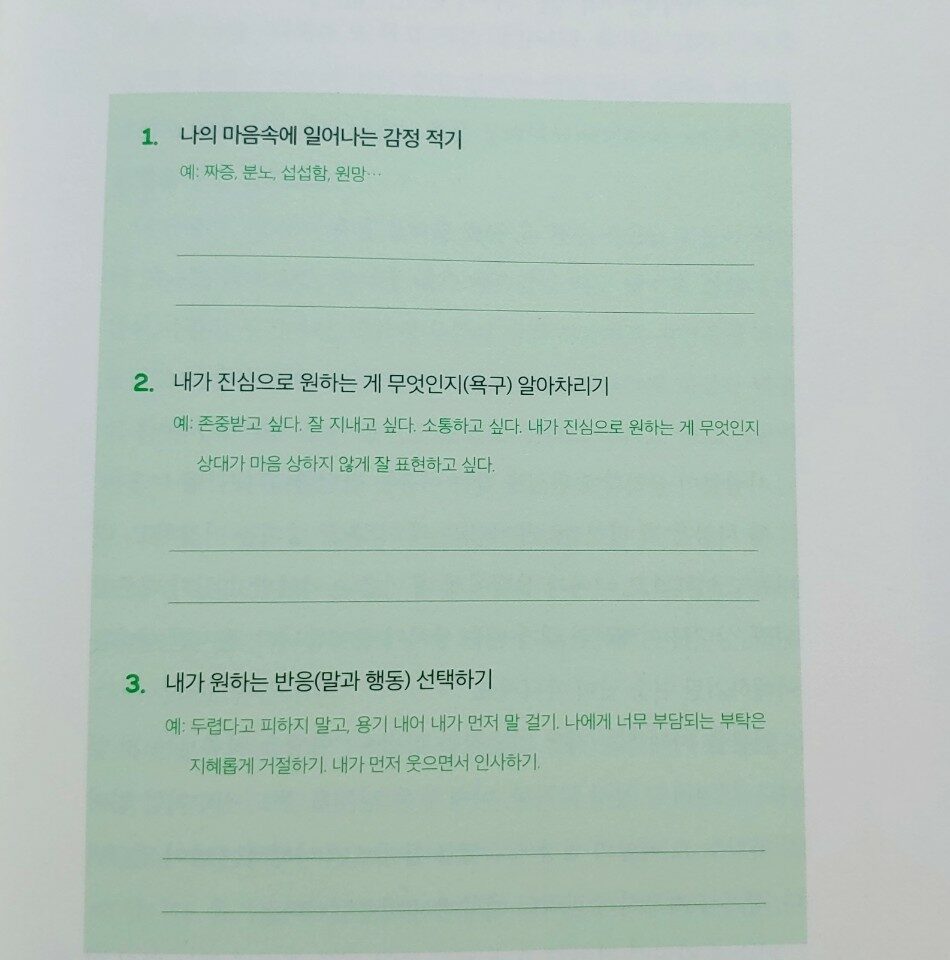 1. 나의 마음속에 일어나는 감정 적기
예: 짜증, 분노, 섭섭함, 원망…
2. 내가 진심으로 원하는 게 무엇인지(욕구) 알아차리기
예: 존중받고 싶다. 잘 지내고 싶다. 소통하고 싶다. 내가 진심으로 원하는 게 무엇인지
상대가 마음 상하지 않게 잘 표현하고 싶다.
3. 내가 원하는 반응(말과 행동) 선택하기
예: 두렵다고 피하지 말고, 용기 내어 내가 먼저 말 걸기. 나에게 너무 부담되는 부탁은
지혜롭게 거절하기. 내가 먼저 웃으면서 인사하기.